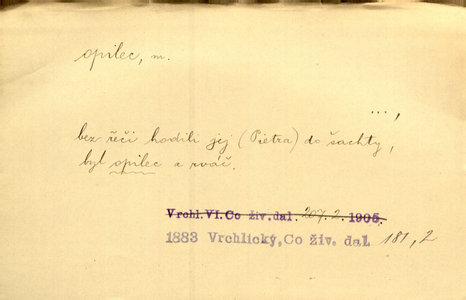 opilec, m.
...,
bez řeči hodili jej (Pietra) do šachty,
byl opilec a rváč.
Vrchl.VI.Co živ.dal. 207. 2. 1905.
1883 Vrchlický, Co živ. dal 181, 2